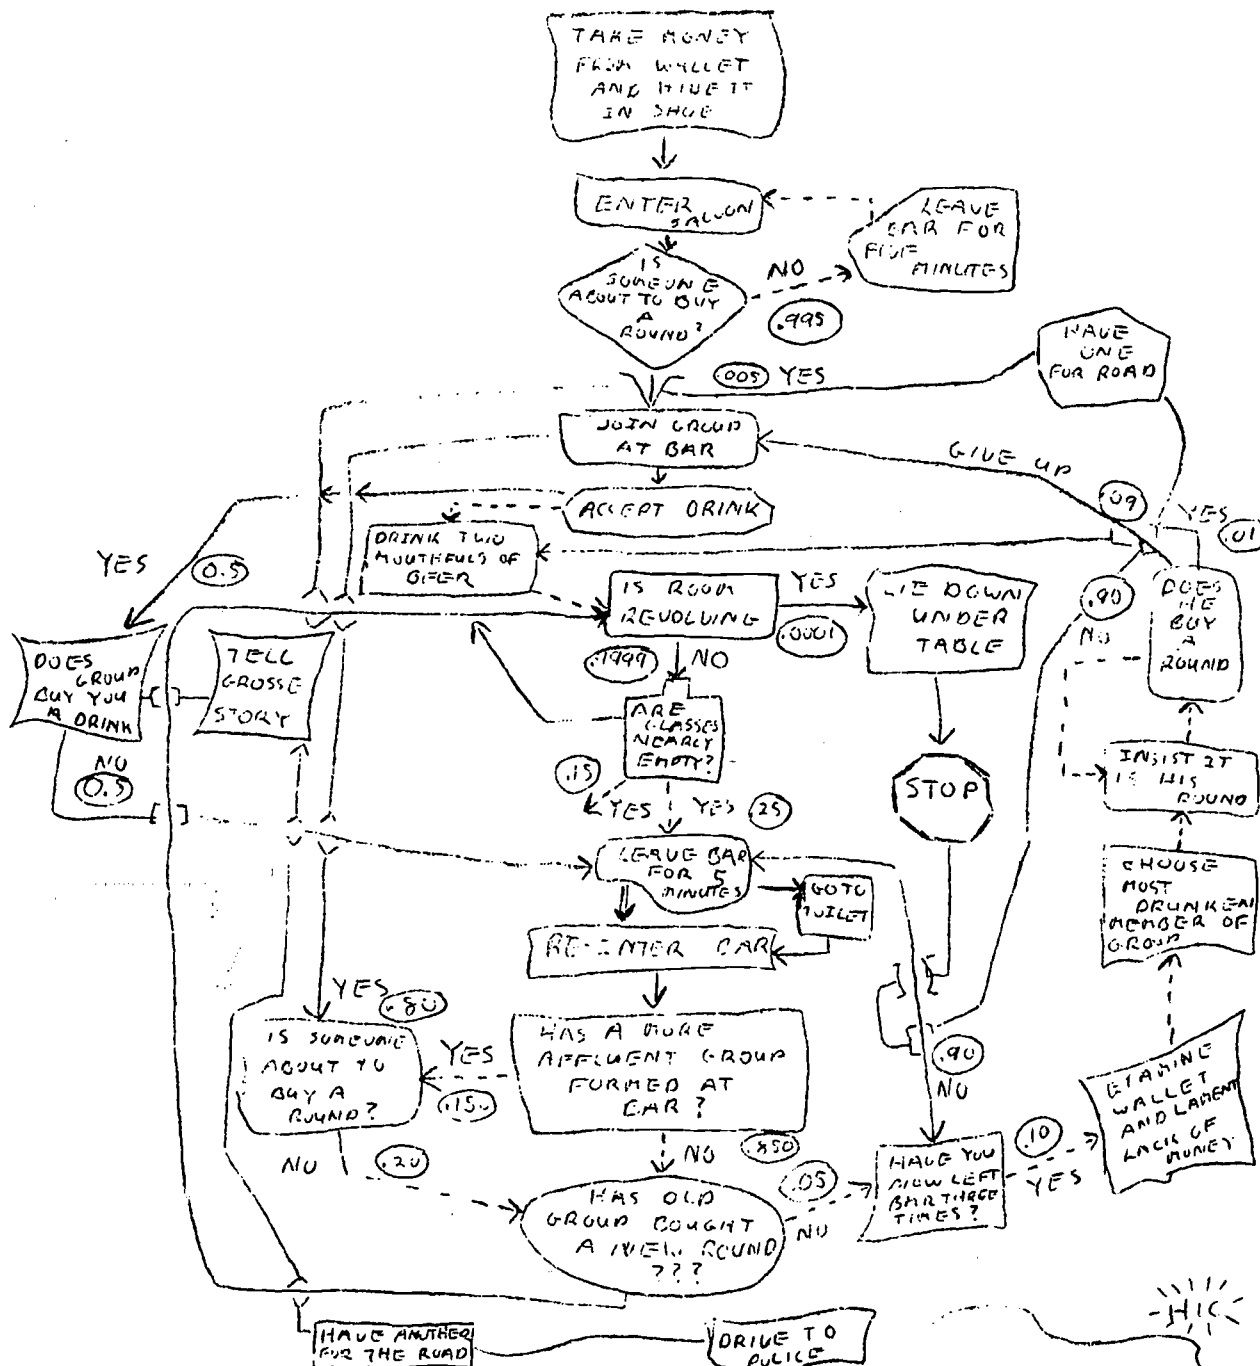 TAKE MONEY
FROM WALLET
AND HIDE IT
IN SHOE
ENTER
SALOON
LEAVE
BAR FOR
FIVE
MINUTES
IS
SOMEONE
ABOUT TO BUY
A
ROUND?
NO
.995
.005 YES
HAVE
ONE
FOR ROAD
JOIN GROUP
AT BAR
GIVE UP
.09
YES
.01
ACCEPT DRINK
DRINK TWO
MOUTHFULS OF
BEER
YES
0.5
IS ROOM
REVOLVING
YES
.0001
LIE DOWN
UNDER
TABLE
.90
NO
DOES
HE
BUY
A
ROUND
DOES
GROUP
BUY YOU
A DRINK
TELL
GROSSE
STORY
.1999
NO
ARE
GLASSES
NEARLY
EMPTY?
NO
0.5
.15
YES
YES
.25
STOP
INSIST IT
IS HIS
ROUND
LEAVE BAR
FOR 5
MINUTES
GO TO
TOILET
CHOOSE
MOST
DRUNKEN
MEMBER OF
GROUP
RE-ENTER BAR
YES
.80
IS SOMEONE
ABOUT TO
BUY A
ROUND?
YES
.150
HAS A MORE
AFFLUENT GROUP
FORMED AT
BAR?
.90
NO
EXAMINE
WALLET
AND LAMENT
LACK OF
MONEY
NO
.20
NO
.850
HAS OLD
GROUP BOUGHT
A NEW ROUND
???
.05
NO
HAVE YOU
NOW LEFT
BAR THREE
TIMES?
.10
YES
HIC
HAVE ANOTHER
FOR THE ROAD
DRIVE TO
POLICE